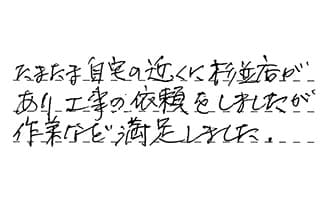 たまたま自宅の近くに杉並店が
あり工事の依頼をしましたが
作業など満足しました.